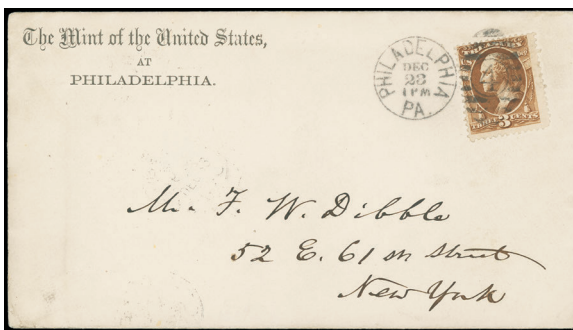 The Mint of the United States,
AT
PHILADELPHIA.
PHILADELPHIA
DEC
23
1 PM
PA.
THREE 3 CENTS
Mr. F. W. Dibble
52 E. 61 st Street
New York